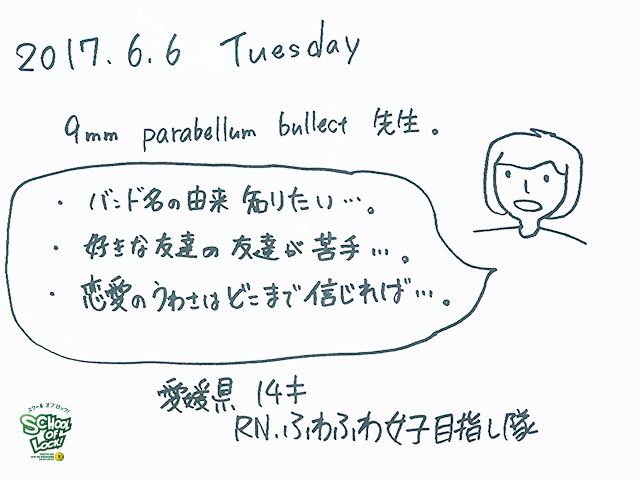 2017.6.6 Tuesday
9mm parabellum bullect 先生。
・バンド名の由来 知りたい…。
・好きな友達の友達が苦手…。
・恋愛のうわさはどこまで信じれば…。
愛媛県 14才
RN.ふわふわ女子目指し隊
スクール オブ ロック!
SCHOOL OF LOCK!